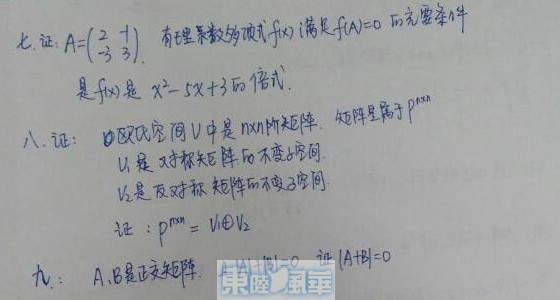 七.证: A=(2 1 -3 3). 有理系数多项式f(x)满足f(A)=0 的充要条件
是f(x)是 x²-5x+3的倍式.
八.证: ①欧氏空间V中是n×n阶矩阵. 矩阵是属于P^{n×n}
V₁是对称矩阵的不变子空间.
V₂是反对称矩阵的不变子空间.
证: P^{n×n}=V₁⊕V₂
九.: A、B是正交矩阵. |B|=0 证|A+B|=0
東陸風華